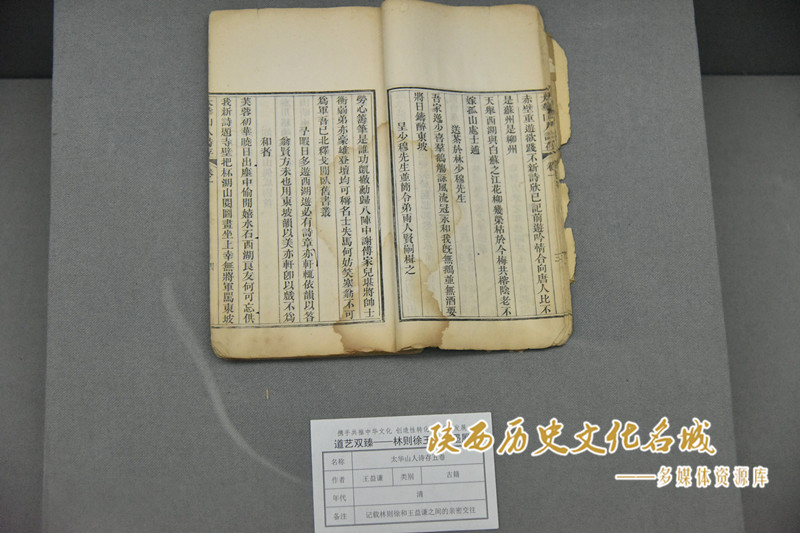 赤壁重遊欲踐不新詩欣已記前遊吟情合向唐人比不
是蘇州是柳州
天與西湖與白蘇之江花柳幾榮枯於今梅共榕陰老不
嫁孤山處士逋
送茶於林少穆先生
吾家逸少喜羣鵝觴詠風流冠永和我旣無鵝並無酒要
將日鑄醉東坡
呈少穆先生並簡令弟雨人賢嗣楫之
勞心籌筆是誰功凱徹勳歸八陣中謝傅家兒堪將帥士
衡弱弟亦豪雄登壇均可稱名士失馬何妨笑塞翁不可
爲軍吾已北釋戈閒臥舊書叢
子暇日多遊西湖遊必有詩章亦軒輒依韻以答
翁賢方東也用東坡韻以美亦軒卽以戲不爲
和者
芙蓉初華曉日出塵中偷閒嬉水石西湖良友何可忘供
我新詩題寺壁把杯湖山閱圖畫坐上幸無將軍罵東坡
太華山人詩存 卷一
携手共推中华文化 创造性转化
道艺双臻——林则徐王
名称 太华山人诗存五卷
作者 王益谦 类别 古籍
年代 清
备注 记载林则徐和王益谦之间的亲密交往
陕西历史文化名城
——多媒体资源库